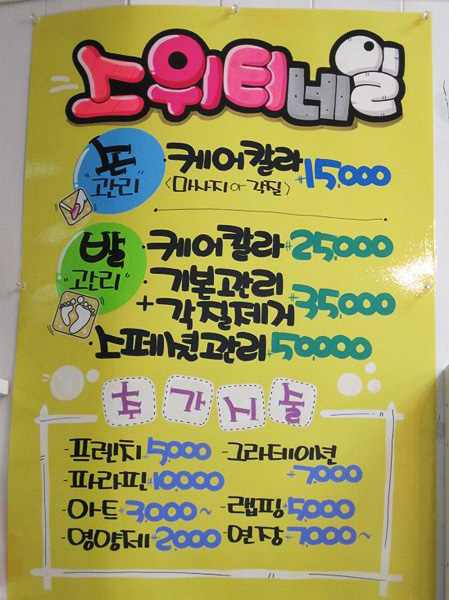 스위티네일
손 "관리" ·케어칼라 <마사지 or 각질> ₩15,000
발 "관리" ·케어칼라 ₩25,000
·기본관리 + 각질제거 ₩35,000
·스페셜관리 ₩50,000
추가시술
-프렌치 5,000 -그라데이션 ₩7,000
-파라핀 ₩10,000
-아트 ₩3,000~ -랩핑 ₩5,000
-영양제 ₩2,000 -연장 ₩7,000~